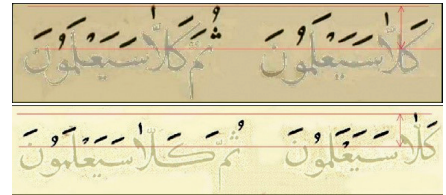 كَلَّا سَيَعْلَمُونَ ثُمَّ كَلَّا سَيَعْلَمُونَ
كَلَّا سَيَعْلَمُونَ ثُمَّ كَلَّا سَيَعْلَمُونَ